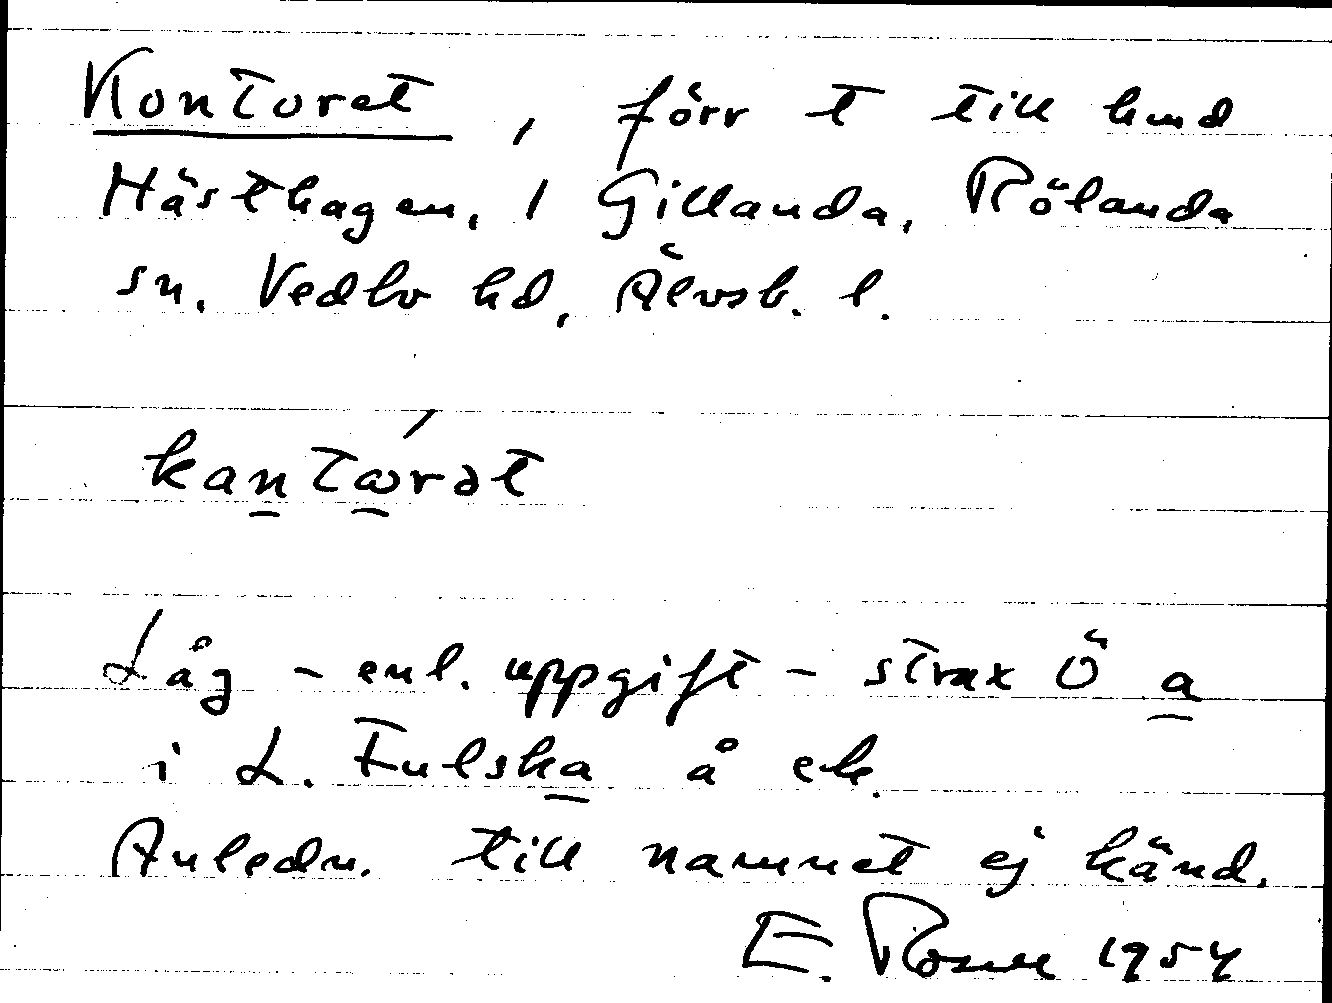 Kontoret, förr t till hmd
Hästhagen, 1 Gillanda, Rölanda
sn. Vedbo hd, Älvsb. l.
kantωrət
Låg – enl. uppgift – strax Ö a
i L. Fulska å ek.
Anledn. till namnet ej känd.
E. Rosell 1954